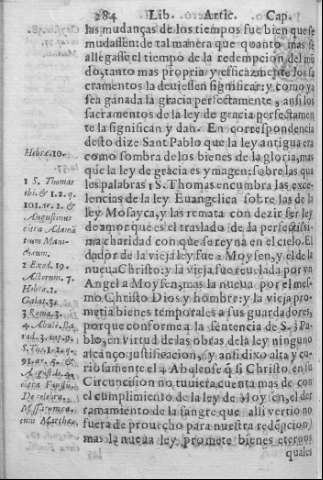 284 Lib. Artic. Cap.
las mudanças de los tiempos fue bien que se
mudassen: de tal manera que quanto mas se
allegasse el tiempo de la redempcion del mũ
do, tanto mas propria y efficazmente los sa
cramentos la deuiessen significar: y como ya
sea ganada la gracia perfectamente, ansi los
sacramentos de la ley de gracia perfectamen
te la significan y dan. En correspondencia
desto dize Sant Pablo que la ley antigua era
como sombra de los bienes de la gloria, mas
que la ley de gracia es ymagen: sobre las qua
les palabras 1 S. Thomas encumbra las exce
lencias de la ley Euangelica sobre las de la
ley Mosayca, y las remata con dezir ser ley
de amor que es el traslado de la perfectissi
ma charidad con que se reyna en el cielo. El
dador de la vieja ley fue 2 Moysen, y el de la
nueua Christo: y la vieja fue reuelada por vn
Angel a Moysen, mas la nueua por el mes
mo Christo Dios y hombre: y la vieja pro
metia bienes temporales a sus guardadores,
porque conforme a la sentencia de S. 3 Pa
blo, en virtud de las obras de la ley ninguno
alcanço justificacion, y anti dixo alta y cu
riosamente el 4 Abulense q̃ si Christo en su
Circuncision no tuuiera cuenta mas de con
el cumplimiento de la ley de Moysen, el der
ramamiento de la sangre que alli vertio no
fuera de prouecho para nuestra redẽpcion,
mas la nueua ley promete bienes eternos
quales
Hebræ. 10.
1 S. Thomas
ibi. & 1. 2. q.
Augustinus
cōtra Adamā
tium Mani-
chæum.
2 Exod. 19.
Actorum. 7.
Hebræ. 2.
Galat. 3.
3 Roma. 3.